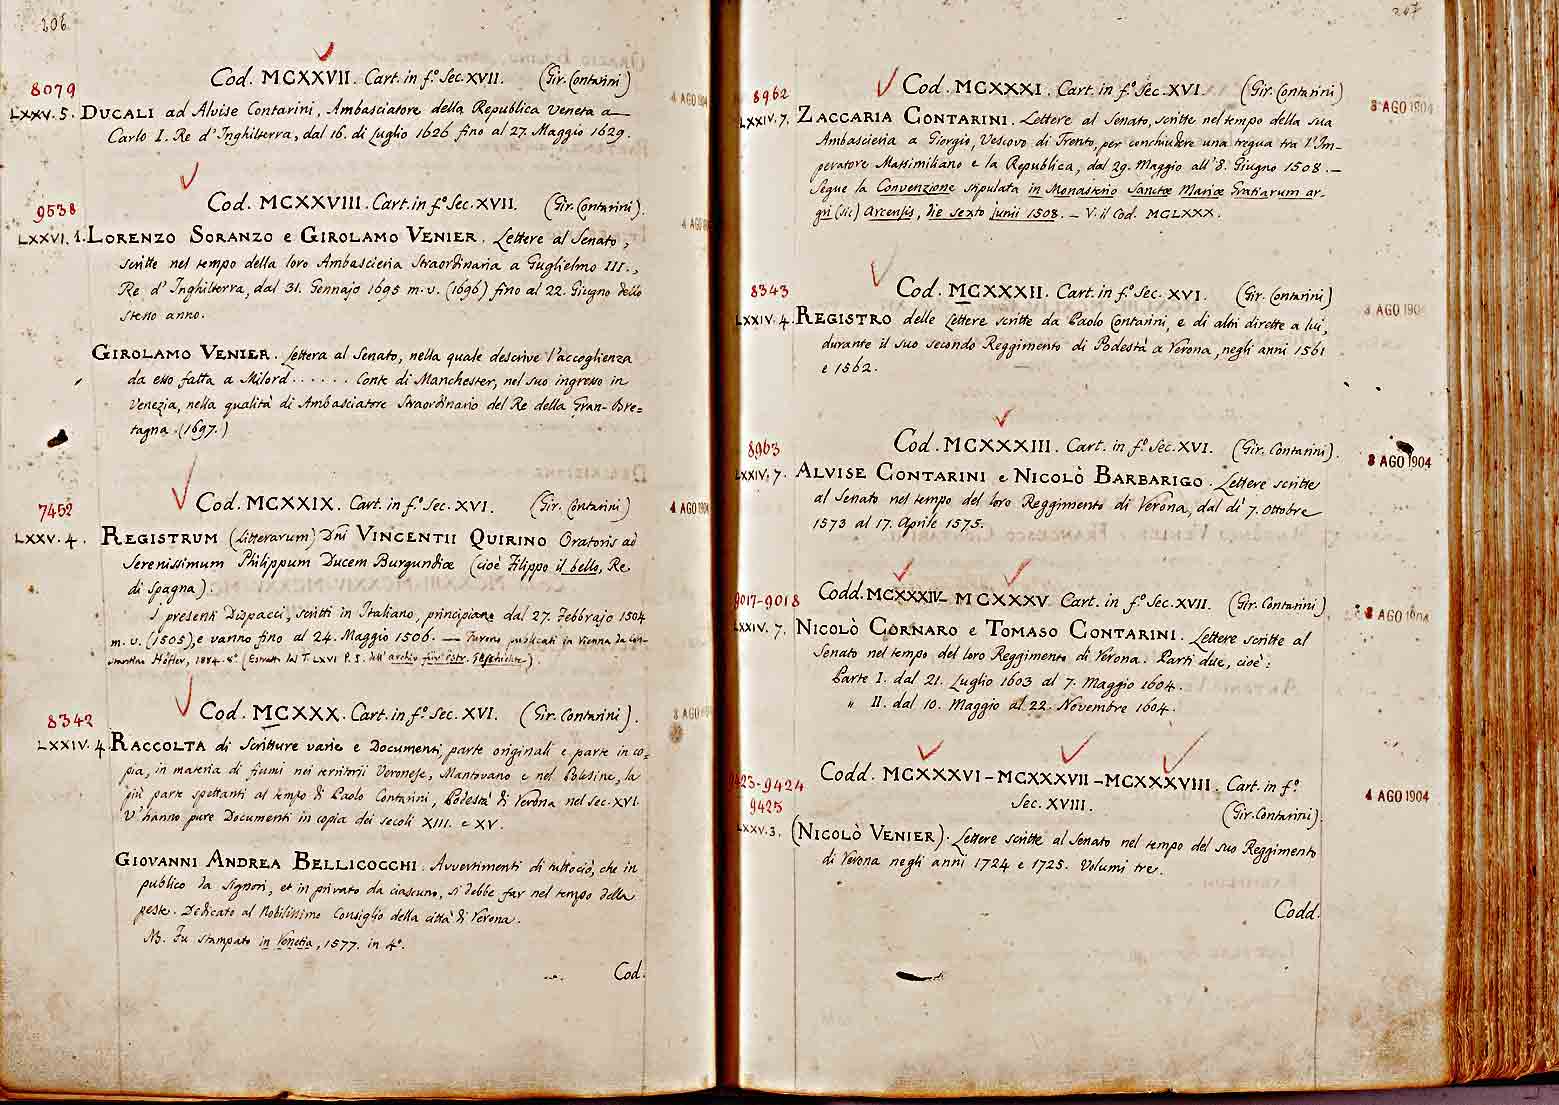 206.
Cod. MCXXVII. Cart. in f.º Sec. XVII. (Gir. Contarini)
8079
LXXV. 5. DUCALI ad Alvise Contarini, Ambasciatore della Republica Veneta a
4 AGO 1904
Carlo I. Re d'Inghilterra, dal 16. di Luglio 1626 fino al 27. Maggio 1629.
Cod. MCXXVIII. Cart. in f.º Sec. XVII. (Gir. Contarini).
9538
4 AGO
LXXVI. 1. LORENZO SORANZO e GIROLAMO VENIER. Lettere al Senato,
scritte nel tempo della loro Ambascieria Straordinaria a Guglielmo III.,
Re d'Inghilterra, dal 31. Gennajo 1695 m. v. (1696) fino al 22. Giugno dello
stesso anno.
GIROLAMO VENIER. Lettera al Senato, nella quale descrive l'accoglienza
da esso fatta a Milord . . . . . . Conte di Manchester, nel suo ingresso in
Venezia, nella qualità di Ambasciatore Straordinario del Re della Gran-Bre=
tagna. (1697.)
Cod. MCXXIX. Cart. in f.º Sec. XVI. (Gir. Contarini)
7452
4 AGO 1904
LXXV. 4. REGISTRUM (Litterarum) Dñi VINCENTII QUIRINO Oratoris ad
Serenissimum Philippum Ducem Burgundiæ (cioè Filippo il bello, Re
di Spagna).
I presenti Dispacci, scritti in Italiano, principiano dal 27. Febbrajo 1504
m. v. (1505), e vanno fino al 24. Maggio 1506. — Furono publicati in Vienna da Con-
stantin Höfler, 1884. 8.º (Estratti dal T. LXVI P. I. dell'archiv für östr. Geschichte).
Cod. MCXXX. Cart. in f.º Sec. XVI. (Gir. Contarini).
8342
8 AGO
LXXIV. 4. RACCOLTA di Scritture varie e Documenti, parte originali e parte in co=
pia, in materia di fiumi nei territorii Veronese, Mantovano e nel Polesine, la
più parte spettanti al tempo di Paolo Contarini, Podestà di Verona nel Sec. XVI.
V'hanno pure Documenti in copia dei secoli XIII. e XV.
GIOVANNI ANDREA BELLICOCCHI. Avvertimenti di tuttociò, che in
publico da Signori, et in privato da ciascuno, si debbe far nel tempo della
peste. Dedicato al Nobilissimo Consiglio della città di Verona.
NB. Fu stampato in Venetia, 1577. in 4.º
Cod.
207
Cod. MCXXXI. Cart. in f.º Sec. XVI. (Gir. Contarini)
8962
8 AGO 1904
LXXIV. 7. ZACCARIA CONTARINI. Lettere al Senato, scritte nel tempo della sua
Ambascieria a Giorgio, Vescovo di Trento, per conchiudere una tregua tra l'Im-
peratore Massimiliano e la Republica, dal 29. Maggio all'8. Giugno 1508. —
Segue la Convenzione stipulata in Monasterio Sanctæ Mariæ Gratiarum ar-
gri (sic) Arcensis, die sexto junii 1508. — V. il Cod. MCLXXX.
Cod. MCXXXII. Cart. in f.º Sec. XVI. (Gir. Contarini)
8343
8 AGO 1904
LXXIV. 4. REGISTRO delle Lettere scritte da Paolo Contarini, e di altri dirette a lui,
durante il suo secondo Reggimento di Podestà a Verona, negli anni 1561
e 1562.
Cod. MCXXXIII. Cart. in f.º Sec. XVI. (Gir. Contarini).
8963
8 AGO 1904
LXXIV. 7. ALVISE CONTARINI e NICOLÒ BARBARIGO. Lettere scritte
al Senato nel tempo del loro Reggimento di Verona, dal dì 7. Ottobre
1573 al 17. Aprile 1575.
Codd. MCXXXIV – MCXXXV Cart. in f.º Sec. XVII. (Gir. Contarini).
9017-9018
8 AGO 1904
LXXIV. 7. NICOLÒ CORNARO e TOMASO CONTARINI. Lettere scritte al
Senato nel tempo del loro Reggimento di Verona. Parti due, cioè:
Parte I. dal 21. Luglio 1603 al 7. Maggio 1604.
" II. dal 10. Maggio al 22. Novembre 1604.
Codd. MCXXXVI – MCXXXVII – MCXXXVIII. Cart. in f.º
9423-9424
Sec. XVIII.
9425
4 AGO 1904
(Gir. Contarini).
LXXV. 3. (NICOLÒ VENIER). Lettere scritte al Senato nel tempo del suo Reggimento
di Verona negli anni 1724 e 1725. Volumi tre.
Codd.